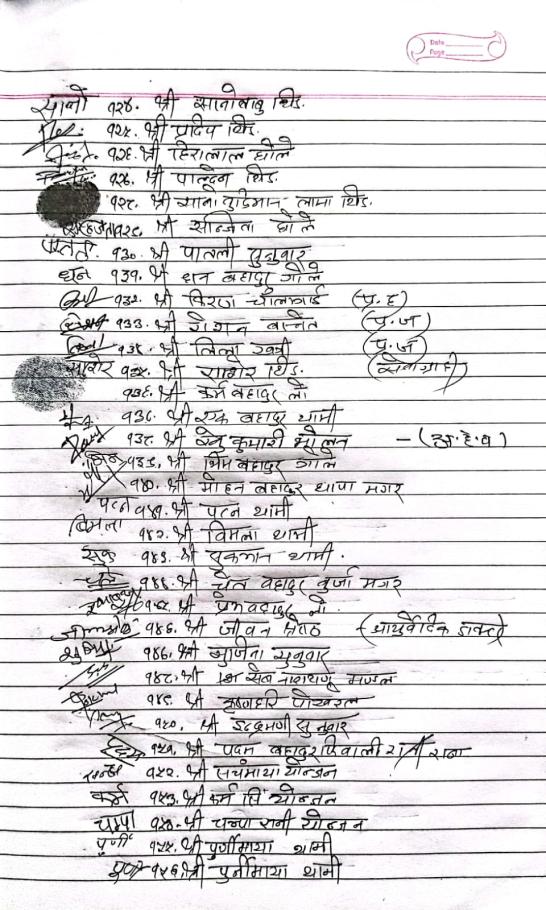 Date
Page
सानो १२४. श्री सानोबाबु थिङ.
१२५. श्री प्रदिप थिङ.
१२६. श्री हिरालाल घोले
१२७. श्री पाल्देन थिङ.
१२८. श्री माना बुद्धिमान लामा थिङ.
१२९. श्री सन्जिता घोले
१३०. श्री पातली सुनुवार
धन १३१. श्री धन बहादुर गोले
१३२. श्री किरण चौलागाई (प्र.ह)
१३३. श्री रोशन बस्नेत (प्र.ज)
१३४. श्री लिला खत्री (प्र.ज)
साबोर १३५. श्री साबोर थिङ.
१३६. श्री कर्म बहादुर लो
१३७. श्री एक बहादुर थामी
१३८. श्री कुमारी मोक्तान - (अ.हे.व)
१३९. श्री भिम बहादुर गोले
१४०. श्री मोहन बहादुर थापा मगर
पत्न १४१. श्री पत्न थामी
बिमला १४२. श्री विमला थामी
सुक १४३. श्री सुकमान थामी.
१४४. श्री चेत बहादुर बुर्जा मगर
१४५. श्री प्रेम बहादुर लो
१४६. श्री जीवन श्रेष्ठ (आयुर्वेदिक डाक्टर)
१४७. श्री सुजिता सुनुवार
१४८. श्री सेब नारायण मण्डल
१४९. श्री कृष्णहरि पोखरेल
१५०. श्री इन्द्रमणी सुनुवार
पदम १५१. श्री पदम बहादुर सिवाली राना
१५२. श्री सचंमाया योन्जन
कर्म १५३. श्री कर्म सिं योन्जन
चम्पा १५४. श्री चम्पा रानी योन्जन
पुर्णी १५५. श्री पुर्णीमाया थामी
१५६. श्री पुर्नीमाया थामी